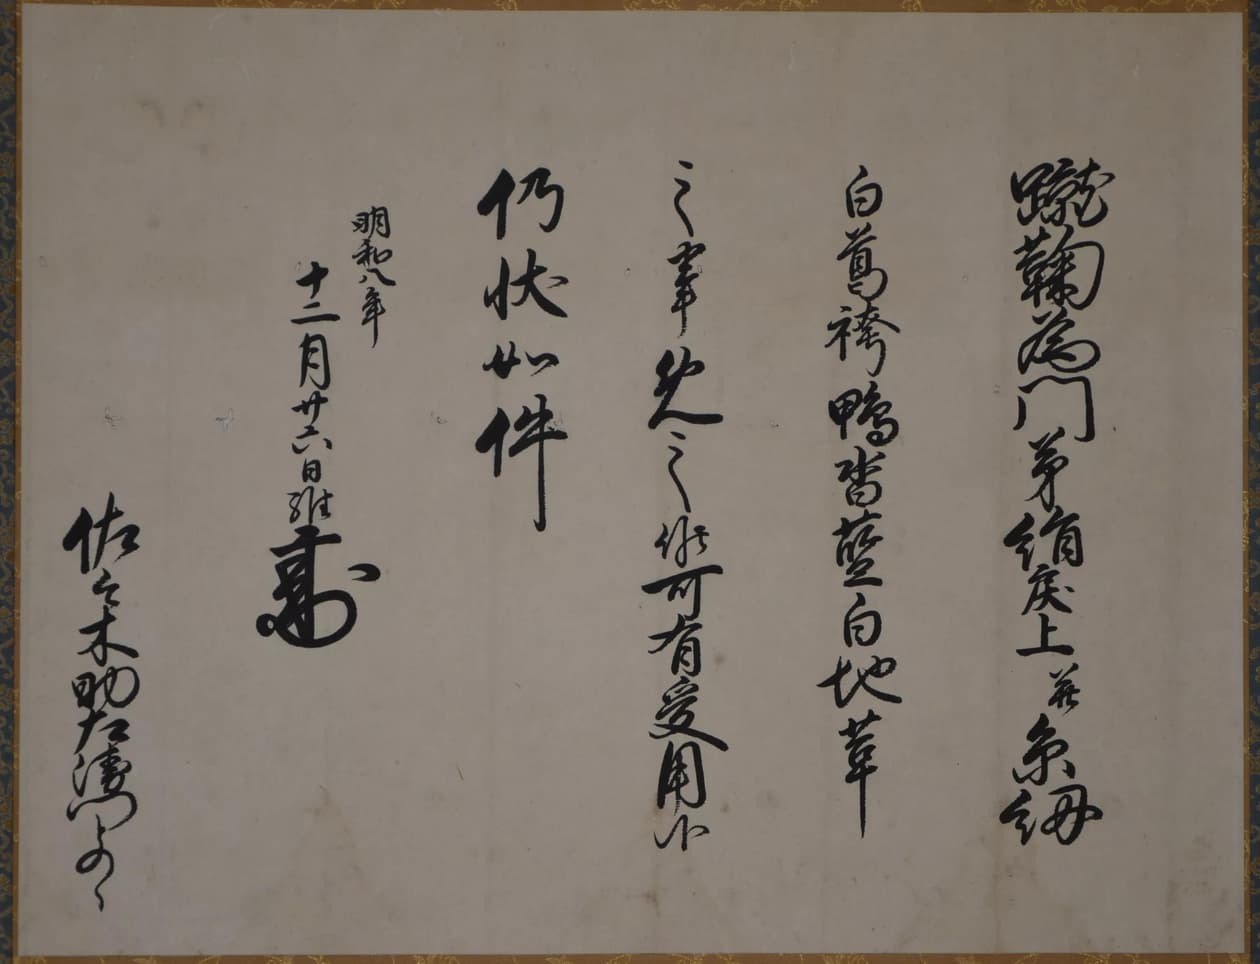 蹴鞠為門弟絹戻上并糸紐
白葛袴鴨沓藍白地革
之事免之條可有受用候
仍状如件
明和八年
十二月廿六日雅
佐々木助左衛門とのへ